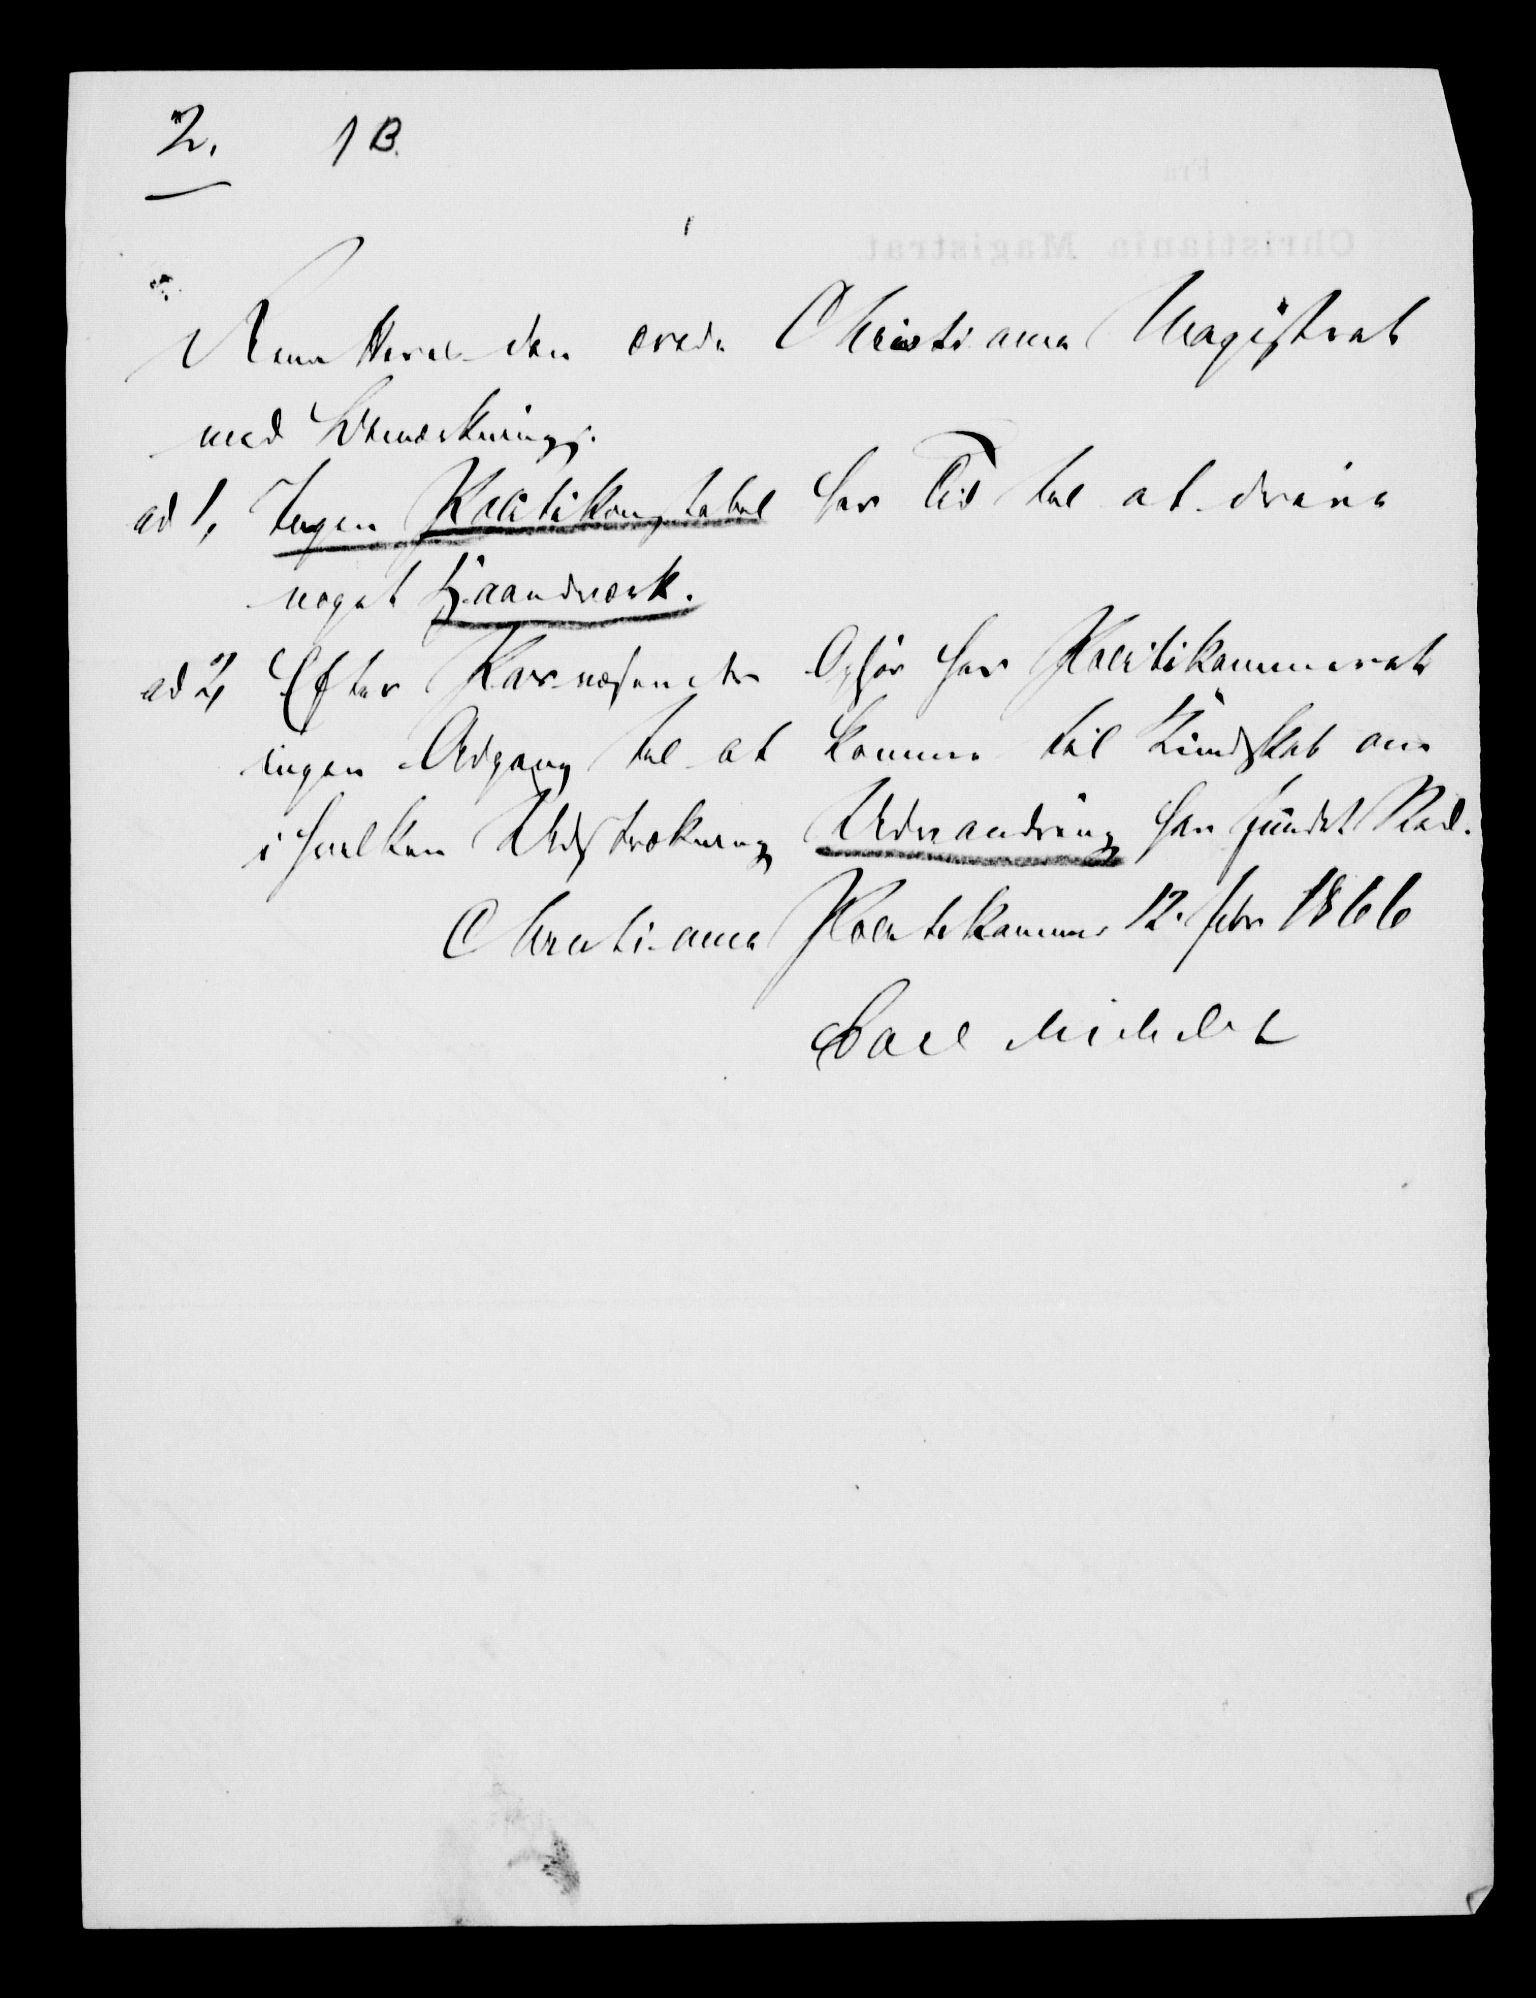 2. 1 B.
Remitteres den ærede Christiania Magistrat
med Bemærkning:
ad 1, Ingen Politikonstabel har Tid til at drive
noget Haandværk.
ad 2, Efter Pasvæsenets Ophør har Politikammeret
ingen Adgang til at komme til Kundskab om
i hvilken Udstrækning Udvandring har fundet Sted.
Christiania Politikammer 12. febr 1866
Carl Michelet
Fra
Christiania Magistrat